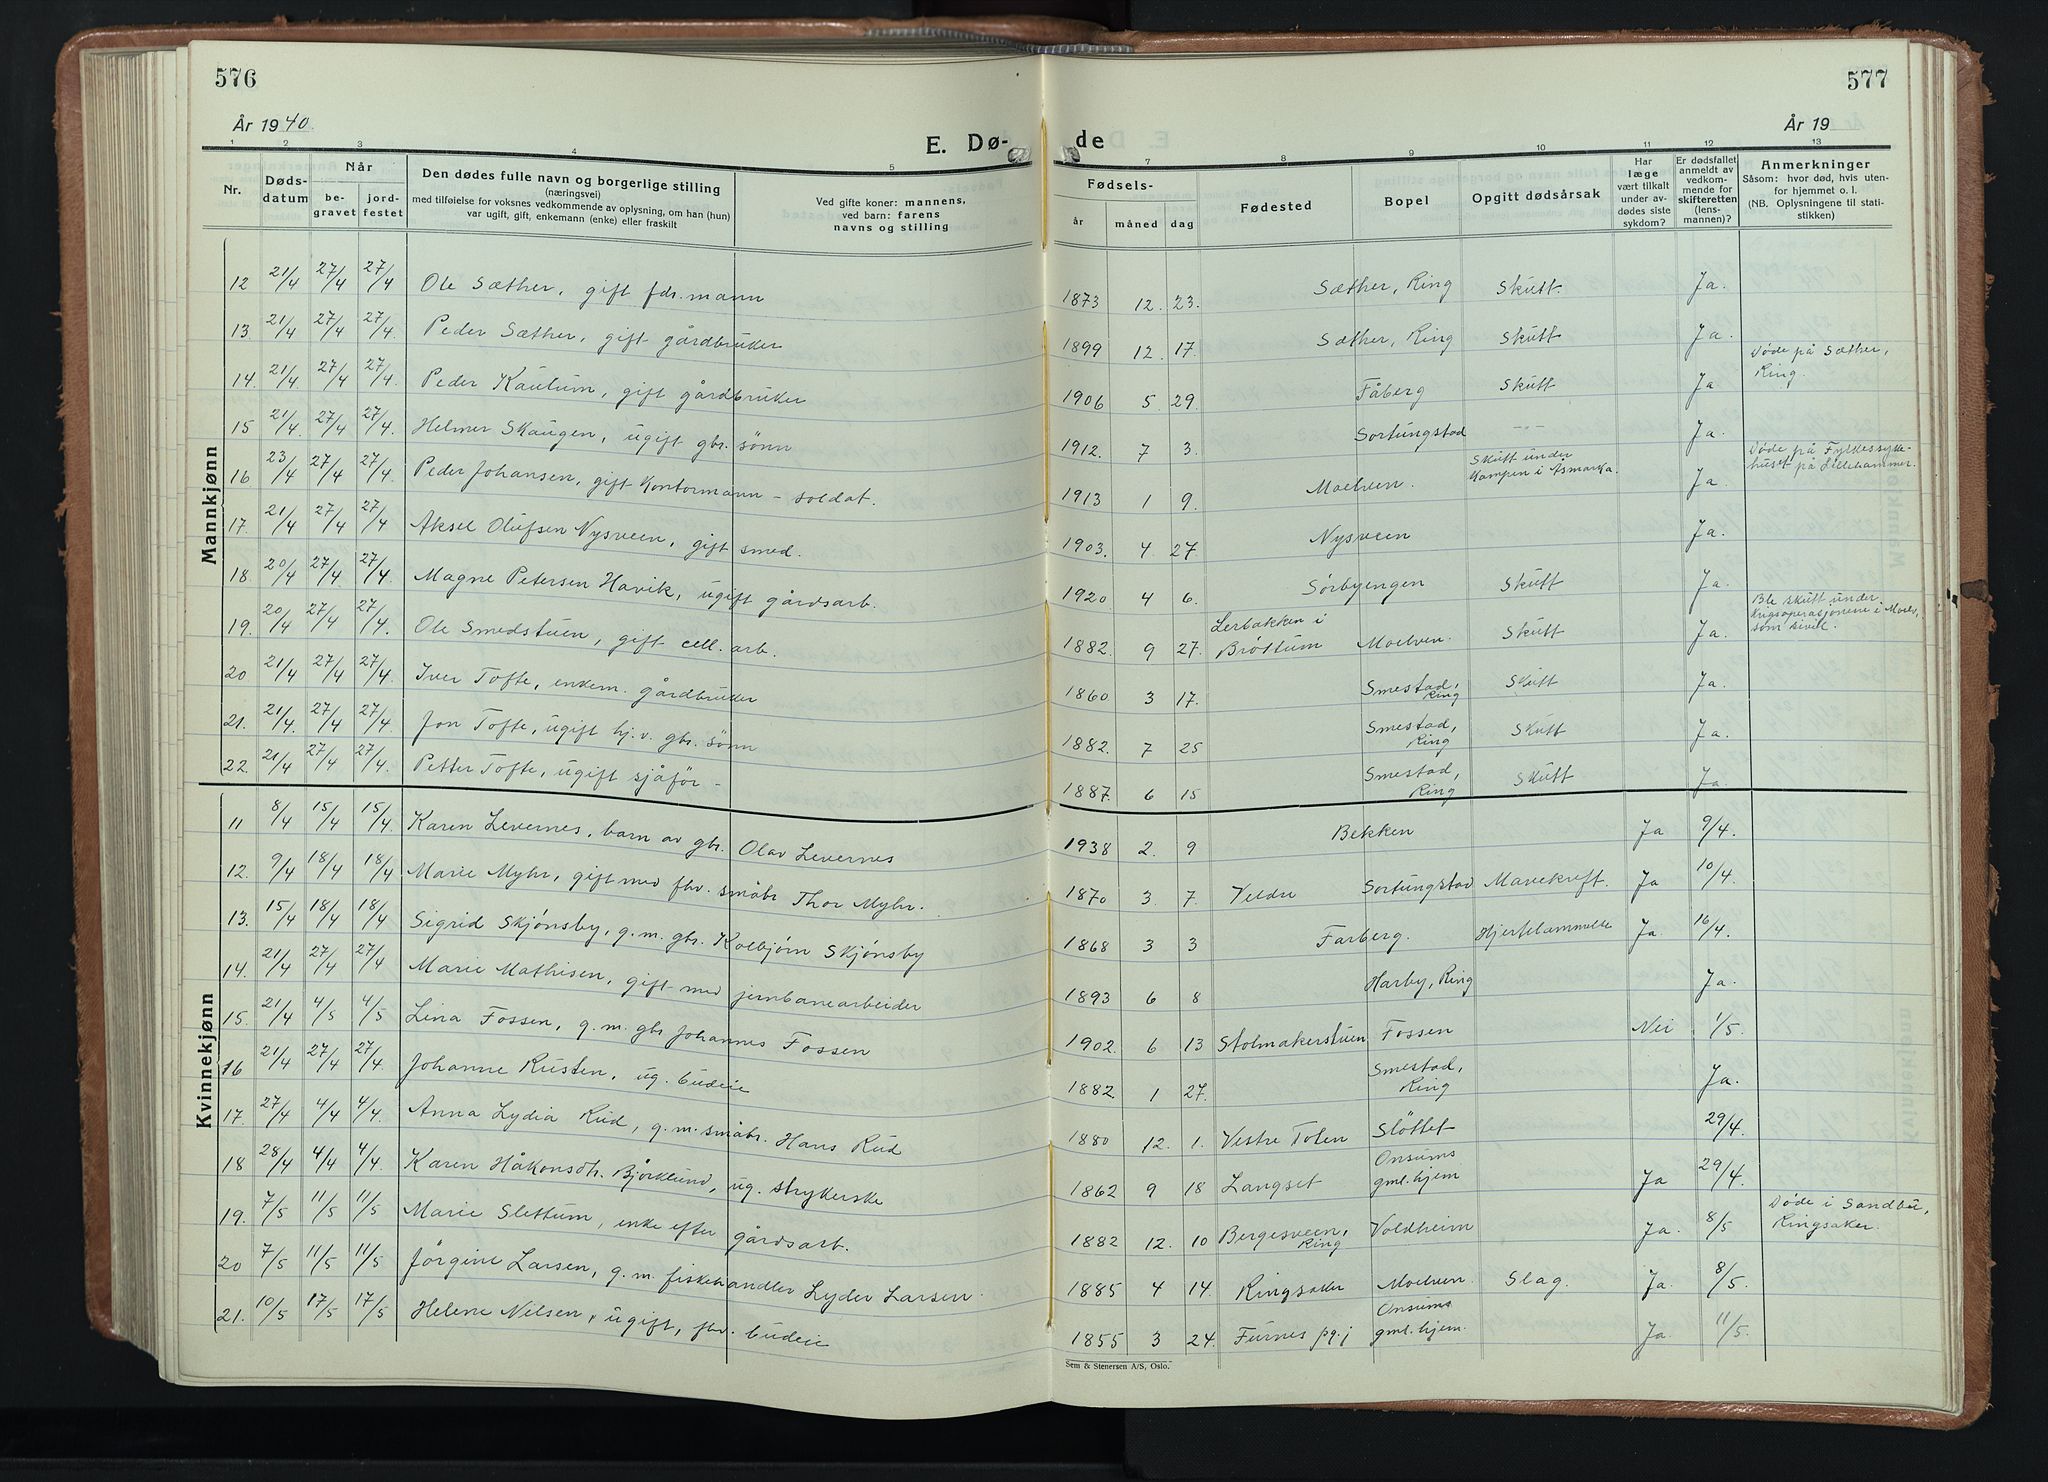 576
577
År 1940.
År 19
E. Dø-
de
1 2 3 4 5 7 8 9 10 11 12 13
Nr.
Døds-
datum
Når
be-
gravet
jord-
festet
Den dødes fulle navn og borgerlige stilling
(næringsvei)
med tilføielse for voksnes vedkommende av oplysning, om han (hun)
var ugift, gift, enkemann (enke) eller fraskilt
Ved gifte koner: mannens,
ved barn: farens
navns og stilling
Fødsels-
år
måned
dag
Fødested
Bopel
Opgitt dødsårsak
Har
læge
vært tilkalt
under av-
dødes siste
sykdom?
Er dødsfallet
anmeldt av
vedkom-
mende for
skifteretten
(lens-
mannen)?
Anmerkninger
Såsom: hvor død, hvis uten-
for hjemmet o. l.
(NB. Oplysningene til stati-
stikken)
Mannkjønn
12 21/4 27/4 27/4 Ole Sæther, gift fdr. mann 1873 12. 23. Sæther, Ring Skutt. Ja.
13. 21/4 27/4 27/4 Peder Sæther, gift gårdbruker 1899 12. 17. Sæther, Ring Skutt Ja.
14. 21/4 27/4 27/4. Peder Kaulum, gift gårdbruker 1906 5 29. Fåberg Skutt Ja Døde på Sæther,
Ring.
15 21/4. 27/4 27/4. Helmer Skaugen, ugift gbr. sønn 1912. 7 3. Sortungstad --- Ja.
16 23/4 27/4 27/4. Peder Johansen, gift Kontormann - soldat. 1913 1 9. Moelven. Skutt under
Kampen i Åsmarka. Ja. Døde på Fylkessyke-
huset på Lillehammer.
17. 21/4 27/4 27/4 Aksel Olufsen Nysveen, gift smed. 1903. 4 27 Nysveen Ja.
18. 20/4 27/4 27/4 Magne Petersen Havik, ugift gårdsarb. 1920 4 6. Sørbyengen Skutt Ja.
19. 20/4 27/4 27/4. Ole Smedstuen, gift cell. arb. 1882. 9 27. Lerbakken i
Brøttum Moelven. Skutt Ja. Ble skutt under
Krigsoperasjonene i Moelv,
som sivil.
20 21/4 27/4 27/4. Iver Tofte, enkem. gårdbruker 1860 3 17. Smestad,
Ring Skutt Ja.
21. 21/4. 27/4 27/4. Jon Tofte, ugift hj. v. gbr. sønn 1882. 7 25 Smestad,
Ring Skutt Ja.
22. 21/4 27/4 27/4. Petter Tofte, ugift sjåfør - 1887. 6 15 Smestad,
Ring Skutt Ja.
Kvinnekjønn
11 8/4 15/4 15/4. Karen Levernes, barn av gbr. Olav Levernes 1938 2. 9 Bekken Ja 9/4.
12. 9/4 18/4 18/4 Marie Myhr, gift med fhv. småbr Thor Myhr. 1870 3. 7. Veldre Sortungstad Mavekreft. Ja 10/4.
13. 15/4 18/4 18/4 Sigrid Skjønsby, g. m. gbr. Kolbjørn Skjønsby 1868 3 3 Farberg. Hjertelammelse Ja. 16/4.
14. 21/4 27/4 27/4 Marie Mathisen, gift med jernbanearbeider 1893 6 8 Harby, Ring Ja.
15. 21/4 4/5 4/5 Lina Fossen, g. m. gbr Johannes Fossen 1902. 6 13 Stolmakerstuen Fossen Nei 1/5.
16 21/4 27/4 27/4. Johanne Rusten, ug. budeie 1882. 1 27. Smestad,
Ring Ja.
17. 27/4 4/4 4/4. Anna Lydia Rud, g. m. småbr. Hans Rud 1880 12. 1. Vestre Toten Sløttet 29/4.
18 28/4 4/4 4/4. Karen Håkonsdtr. Bjørklund, ug. strykerske 1862 9 18 Langset Onsums
gml.hjem Ja 29/4.
19. 7/5 11/5 11/5 Marie Slettum, enke efter gårdsarb. 1882 12. 10 Bergesveen,
Ring Voldheim Ja. 8/5 Døde i Sandbu,
Ringsaker.
20 7/5 11/5 11/5 Jørgine Larsen, g. m. fiskehandler Lyder Larsen. 1885 4 14. Ringsaker Moelven. Slag. Ja. 8/5.
21. 10/5 17/5 17/5 Helene Nilsen, ugift, fhv. budeie 1855 3 24. Furnes pg.j Onsums
gml.hjem. Ja. 11/5.
Sem & Stenersen A/S, Oslo.